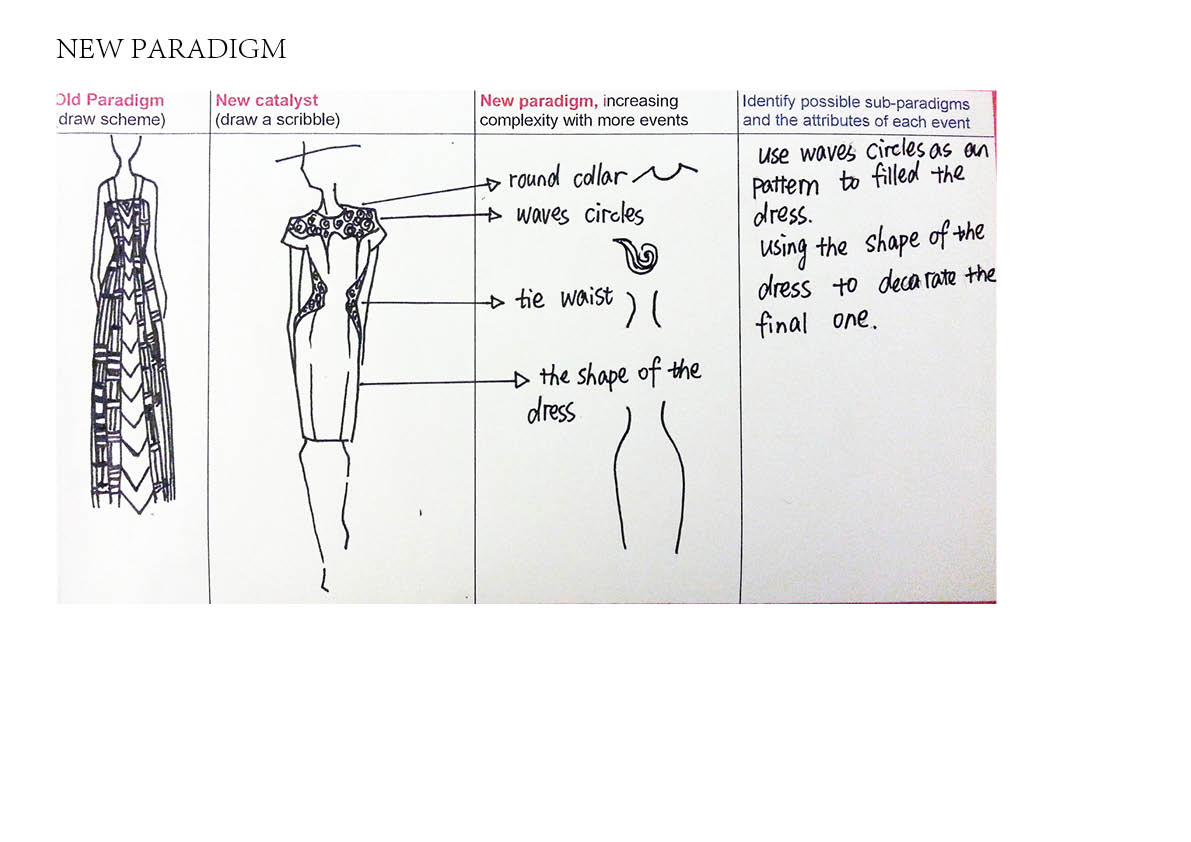 NEW PARADIGM
Old Paradigm
draw scheme)
New catalyst
(draw a scribble)
New paradigm, increasing
complexity with more events
Identify possible sub-paradigms
and the attributes of each event
round collar
waves circles
tie waist
the shape of the
dress
use waves circles as an
pattern to filled the
dress.
using the shape of the
dress to decarate the
final one.